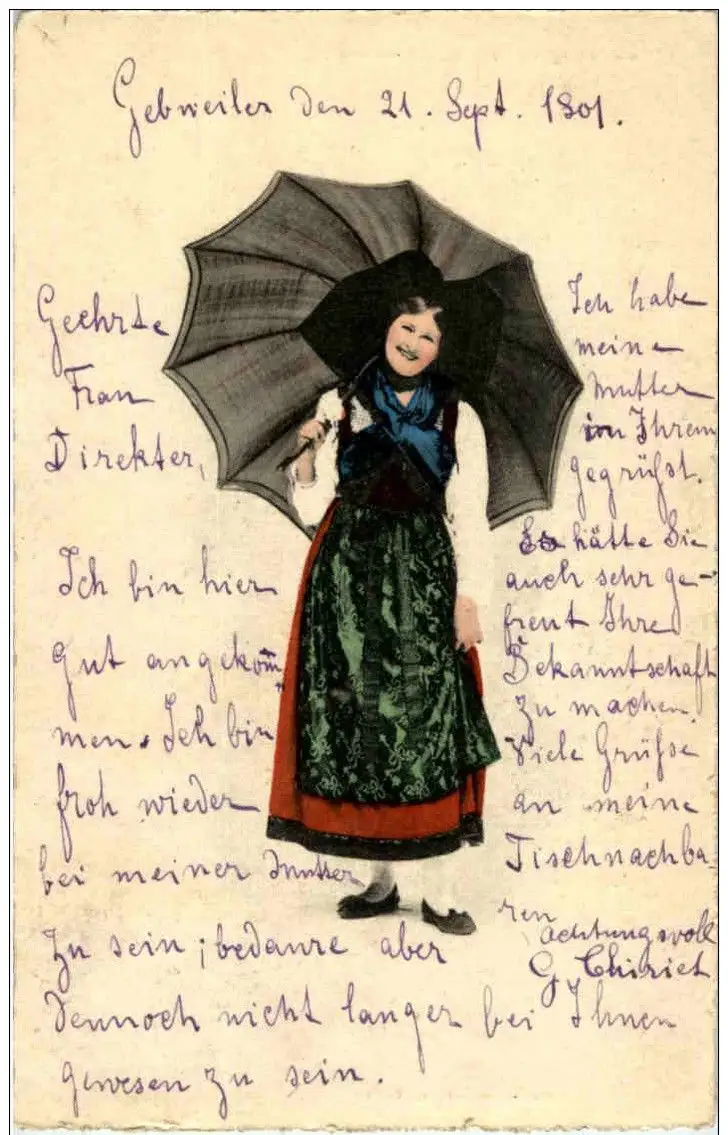 Gebweiler den 21. Sept. 1901.
Geehrte
Frau
Direkter,
Ich bin hier
gut angekom-
men. Ich bin
froh wieder
bei meiner Mutter
zu sein; bedaure aber
dennoch nicht langer bei Ihnen
gewesen zu sein.
Ich habe
meine
Mutter
von Ihrem
gegrüßt.
Es hätte Sie
auch sehr ge-
freut Ihre
Bekanntschaft
zu machen.
Viele Grüße
an meine
Tischnachba-
ren
achtungsvoll
G. Chiriet